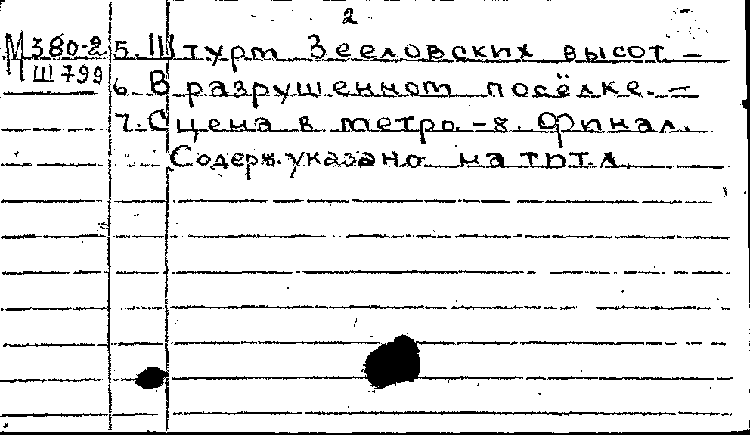 2
М380-2 5. Штурм Зееловских высот –
Ш799 6. В разрушенном посёлке. –
7. Сцена в метро. – 8. Финал.
Содерж. указано на тит.л.